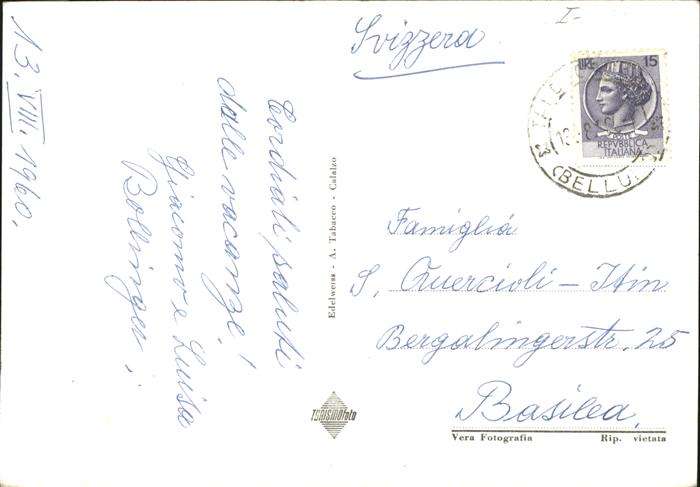 13. VIII. 1960.
Cordiali saluti
dalle vacanze!
Giacomo e Luisa
Edelweiss - A. Tabacco - Calalzo
TURISMOfoto
I-
Svizzera
LIRE 15
REPVBBLICA
ITALIANA
(BELLU
Famiglia
S. Quercioli - Itin
Bergalingerstr. 25
Basilea.
Vera Fotografia Rip. vietata